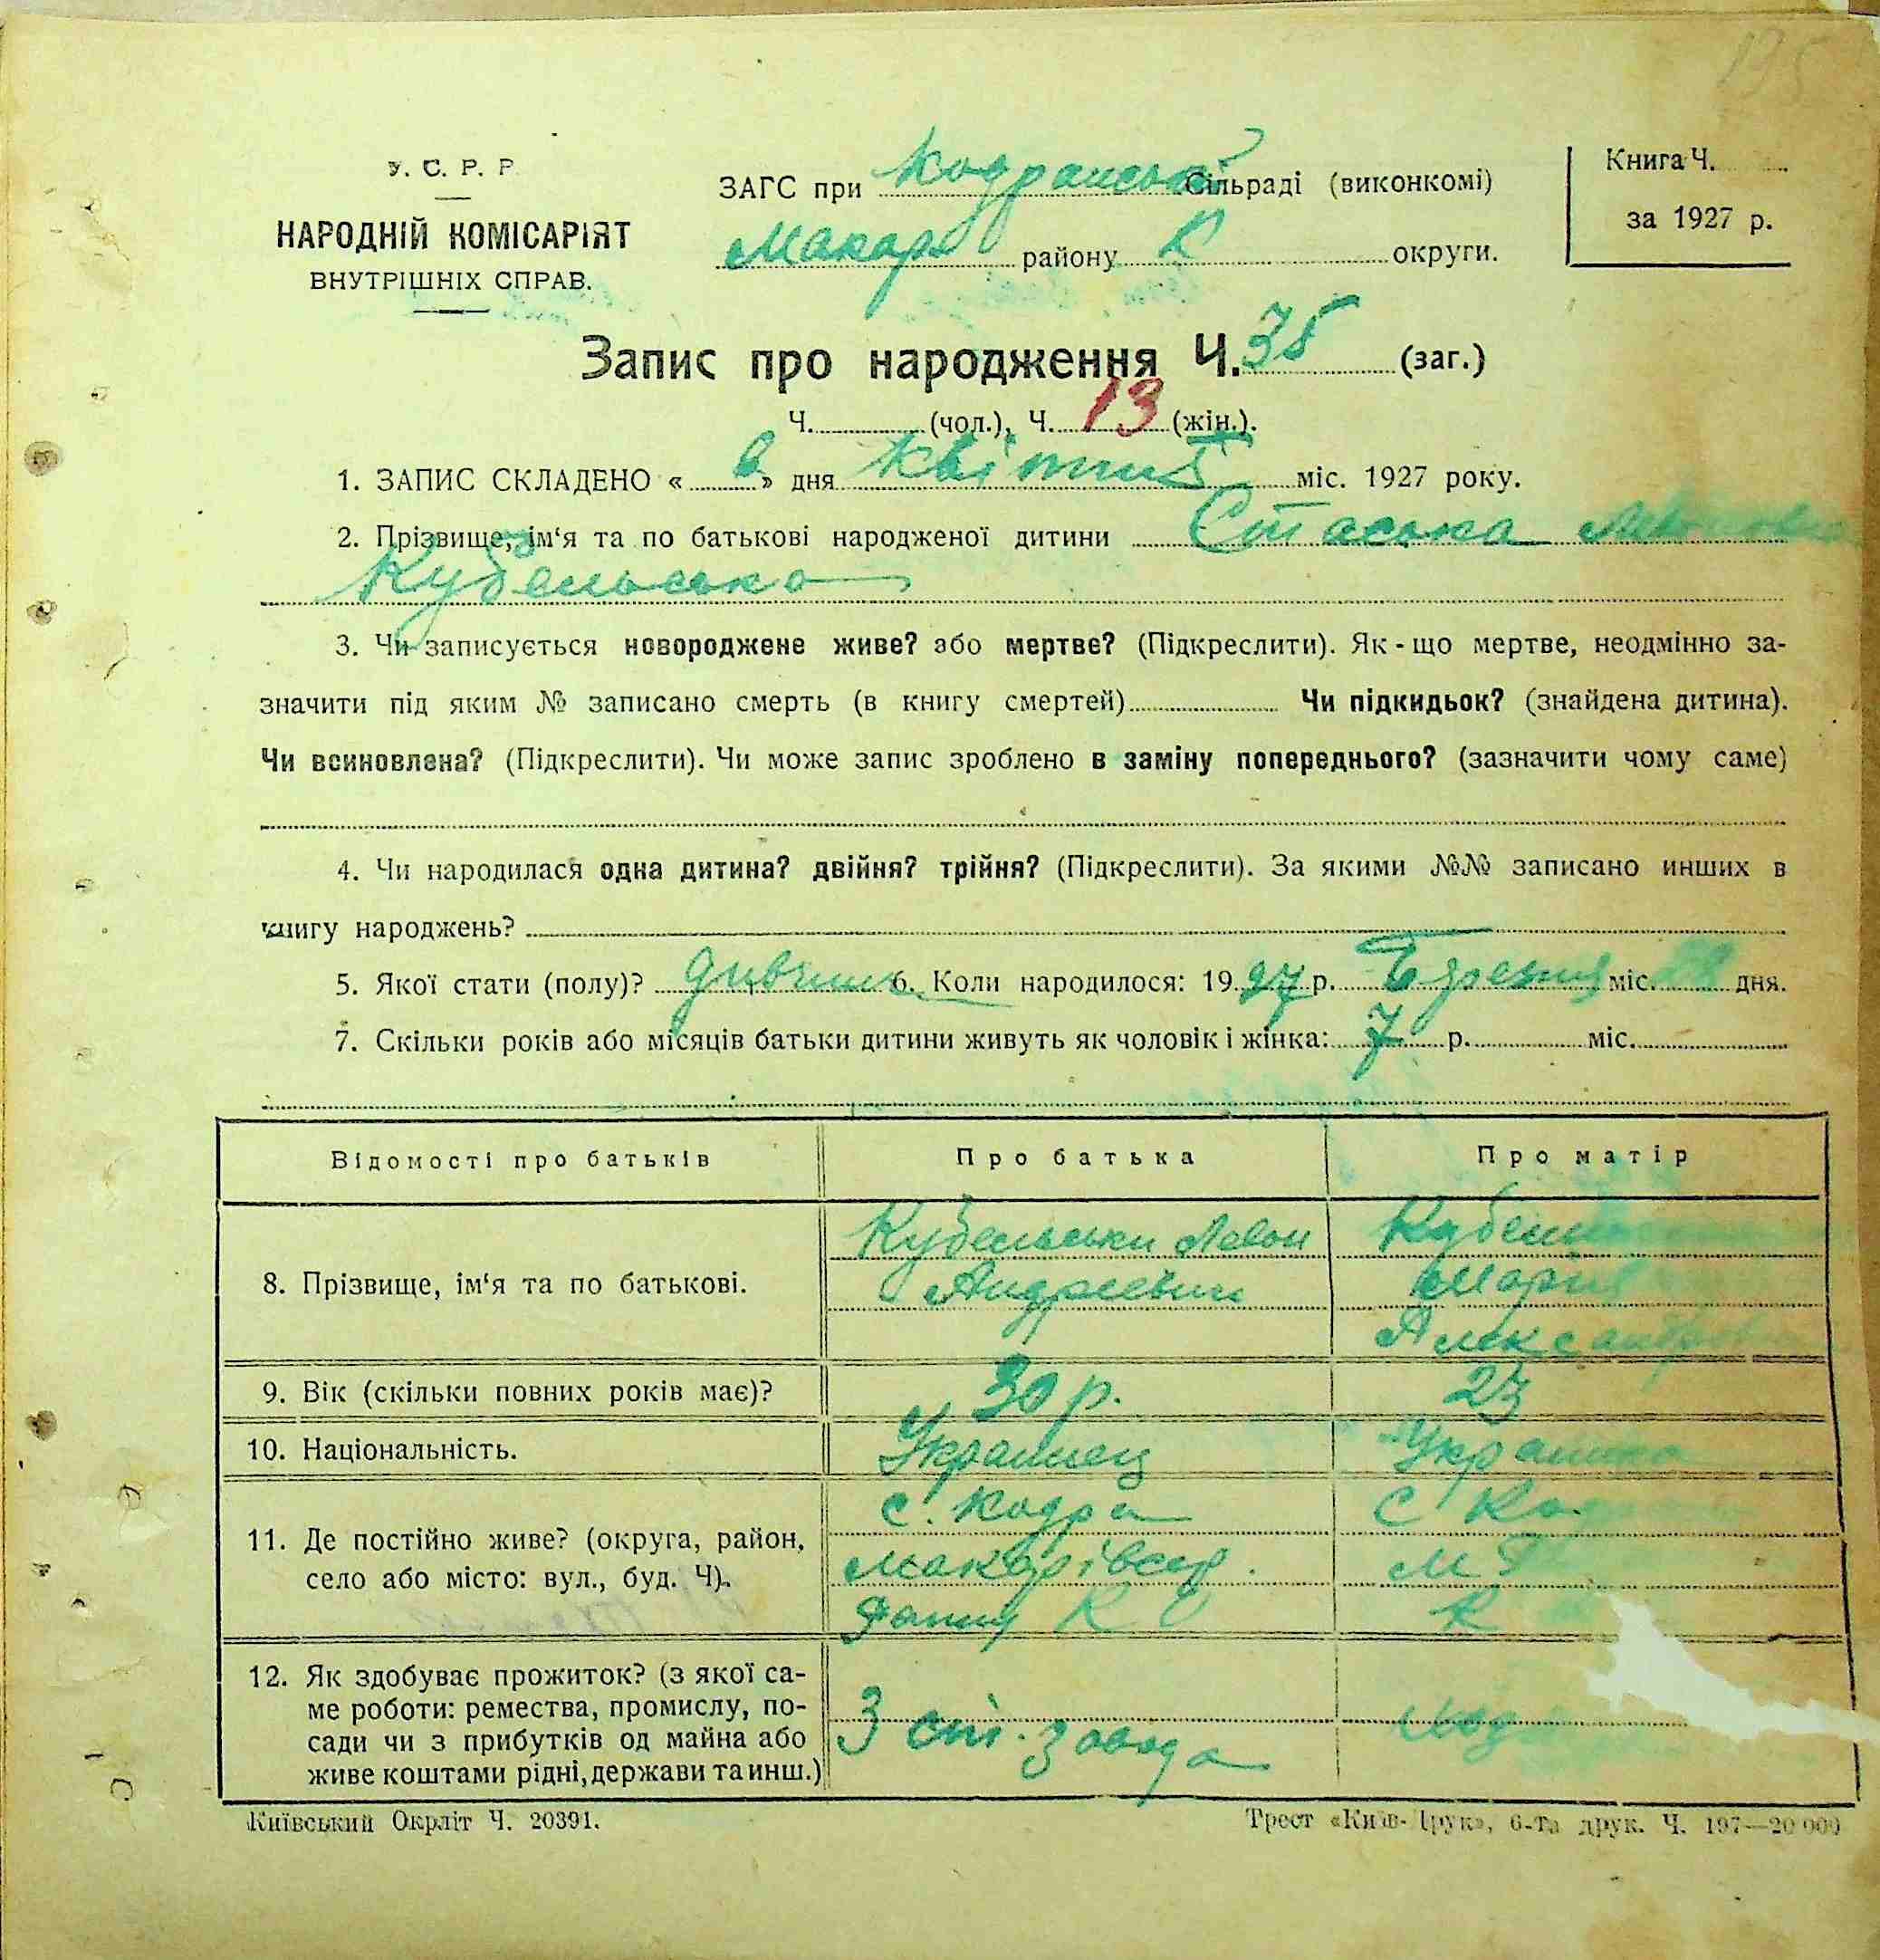 195
У. С. Р. Р.
НАРОДНІЙ КОМІСАРІЯТ
ВНУТРІШНІХ СПРАВ.
ЗАГС при Кодранській Сільраді (виконкомі)
Макар району К округи.
Книга Ч.
за 1927 р.
Запис про народження Ч. 35 (заг.)
Ч. (чол.), Ч. 13 (жін.).
1. ЗАПИС СКЛАДЕНО « » дня квітня міс. 1927 року.
2. Прізвище, ім‘я та по батькові народженої дитини Стаська
Кубельська
3. Чи записується новороджене живе? або мертве? (Підкреслити). Як-що мертве, неодмінно за-
значити під яким № записано смерть (в книгу смертей) Чи підкидьок? (знайдена дитина).
Чи всиновлена? (Підкреслити). Чи може запис зроблено в заміну попереднього? (зазначити чому саме)
4. Чи народилася одна дитина? двійня? трійня? (Підкреслити). За якими №№ записано инших в
книгу народжень?
5. Якої стати (полу)? 6. Коли народилося: 1927 р. Березня міс. дня.
7. Скільки років або місяців батьки дитини живуть як чоловік і жінка: 7 р. міс.
Відомості про батьків Про батька Про матір
8. Прізвище, ім‘я та по батькові.
Кубельськи Левон
Андреевич
Марія
9. Вік (скільки повних років має)? 30 р. 23
10. Національність. Украинец Украинка
11. Де постійно живе? (округа, район,
село або місто: вул., буд. Ч).
с. Кодра
Макарівськ.
К О
С
М
К
12. Як здобуває прожиток? (з якої са-
ме роботи: ремества, промислу, по-
сади чи з прибутків од майна або
живе коштами рідні, держави та инш.)
З завода
Київський Окрліт Ч. 20391.
Трест «Київ-Друк», 6-та друк. Ч. 197—20 000